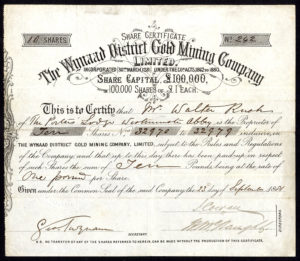 SHARE CERTIFICATE
10 SHARES
No. 242
The Wynaad District Gold Mining Company
LIMITED.
SHARE CAPITAL £100,000,
100,000 SHARES OF £1 EACH.
This is to Certify that Mr Walter Rush
of The Porters Lodge Westminster Abbey is the Proprietor of
Ten Shares Nos. 32970 to 32979 inclusive, in
THE WYNAAD DISTRICT GOLD MINING COMPANY, LIMITED, subject to the Rules and Regulations
of the Company; and that up to this day there has been paid up in respect
of such Shares the sum of Ten Pounds, being at the rate of
One pound per Share.
Given under the Common Seal of the said Company, the 22 day of September 1881
N.B. NO TRANSFER OF ANY OF THE SHARES REFERRED TO HEREIN, CAN BE MADE WITHOUT THE PRODUCTION OF THIS CERTIFICATE.